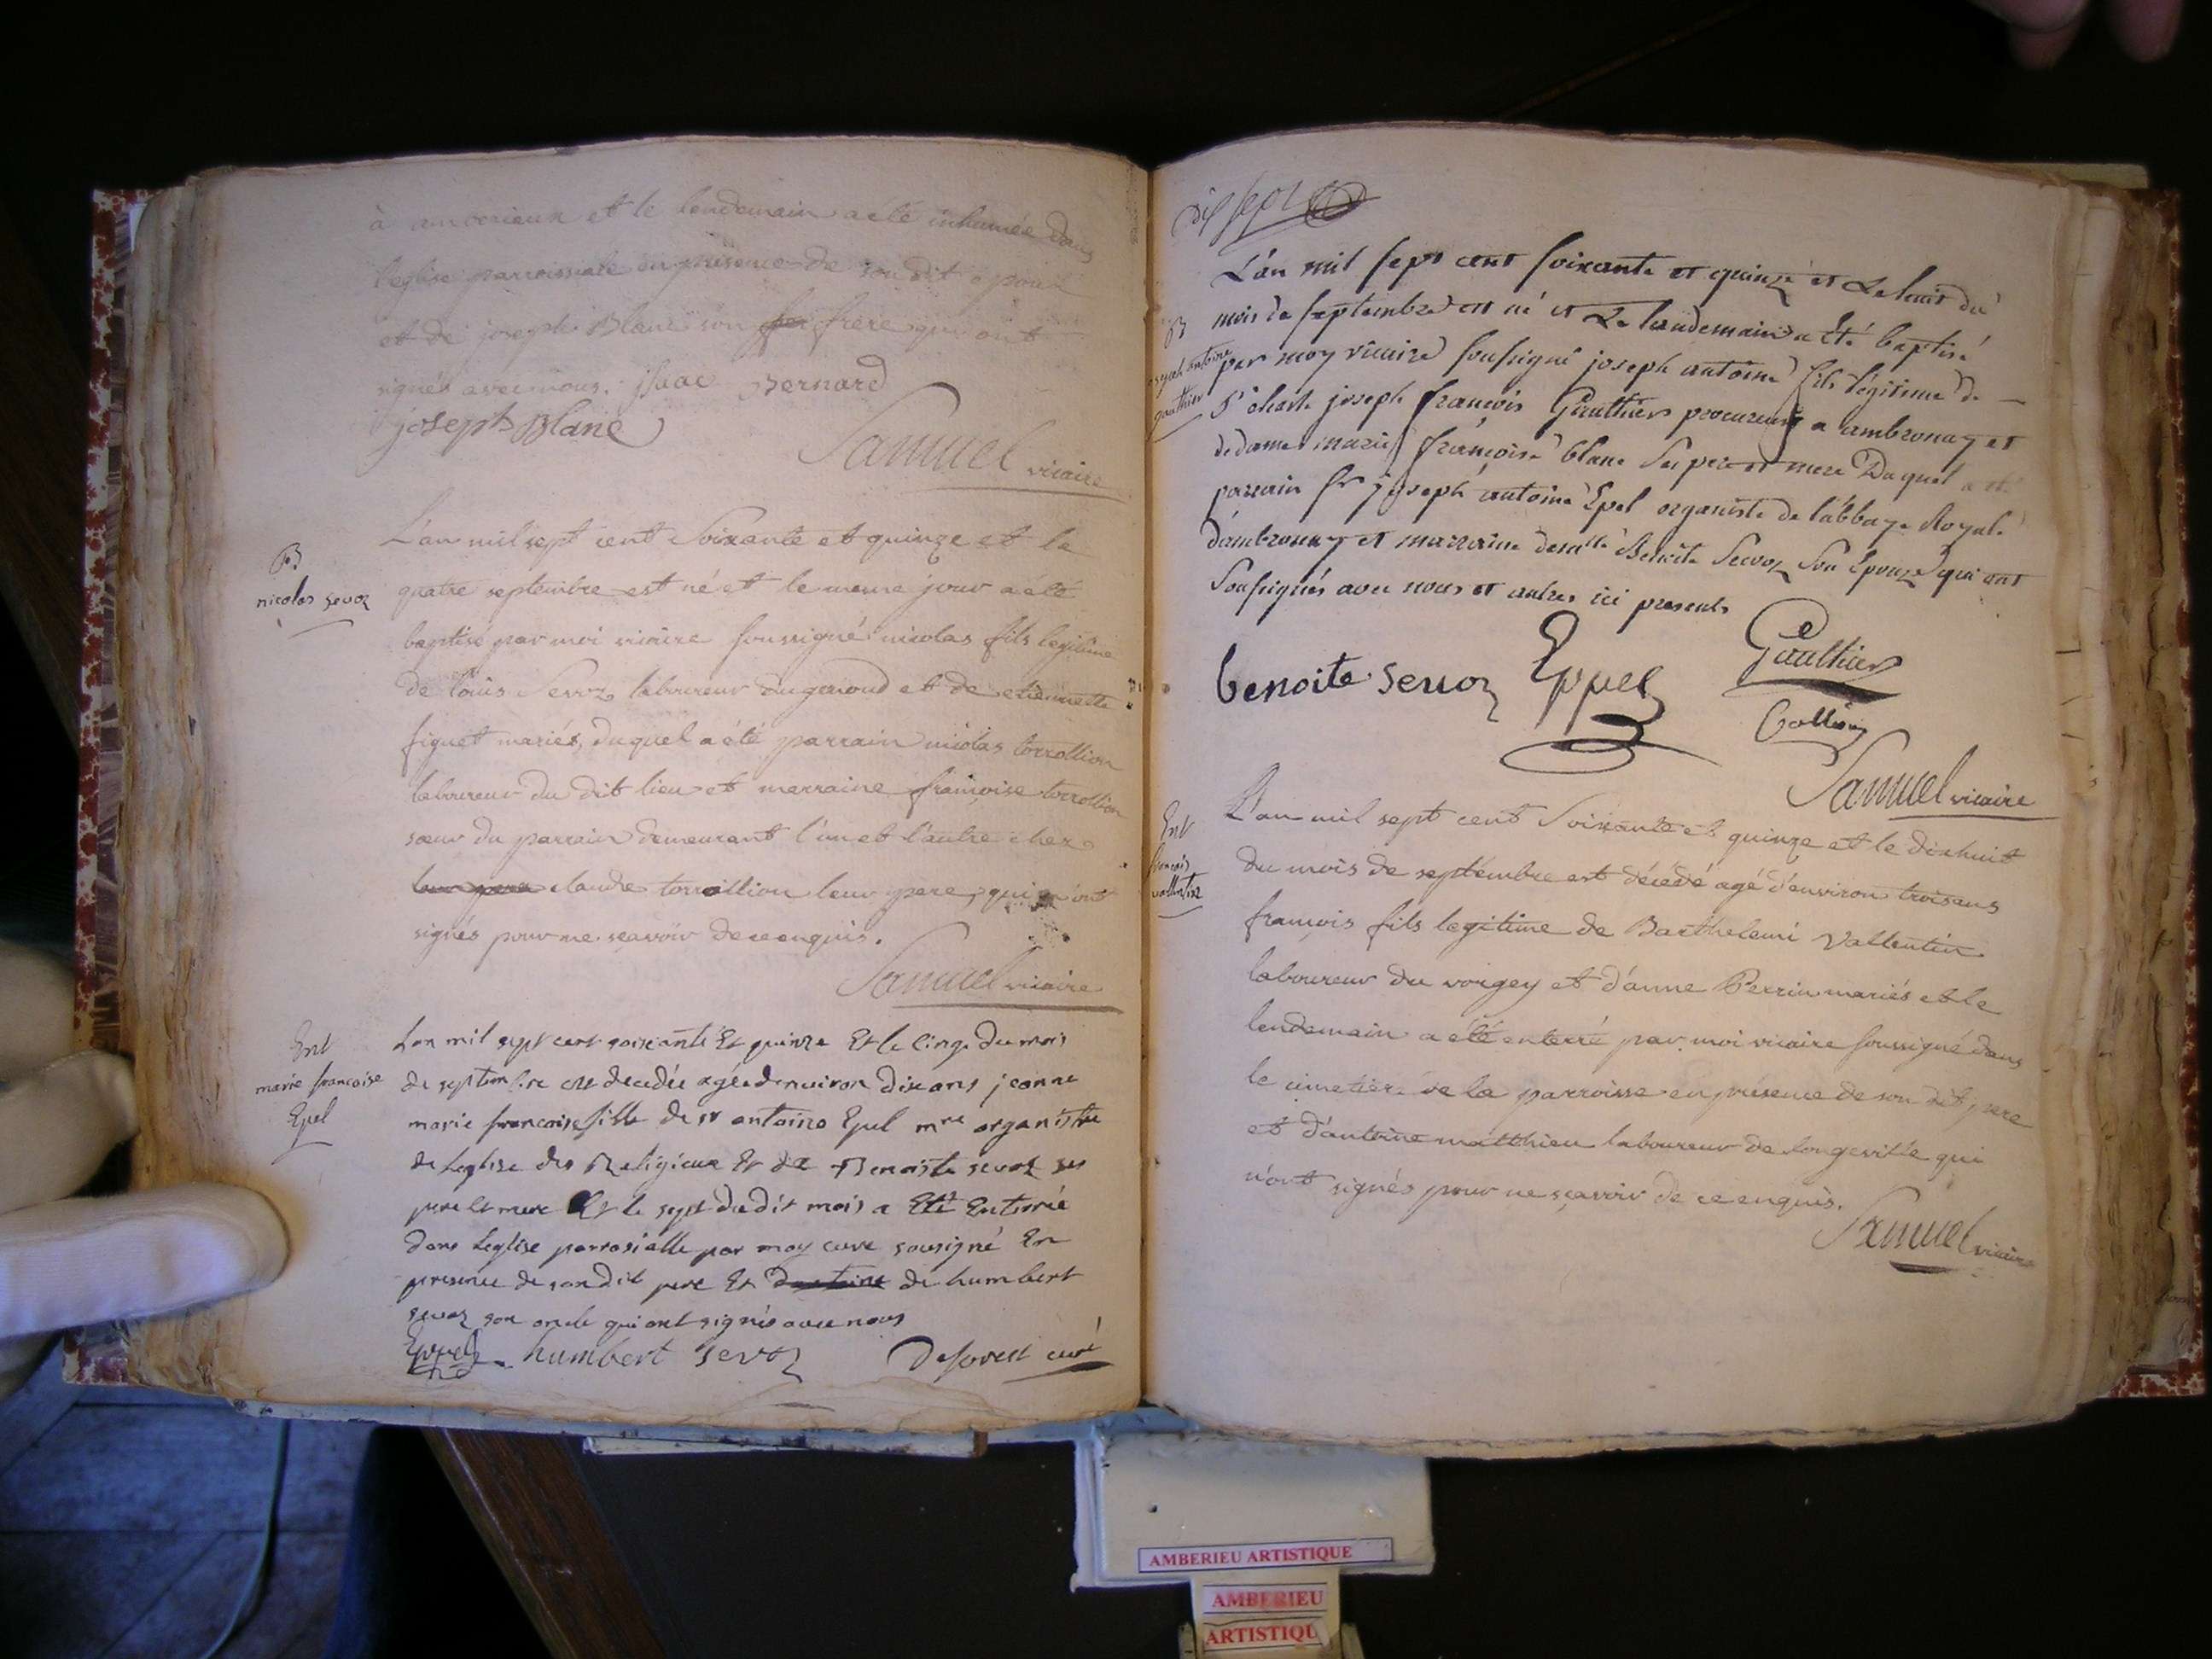 à amberieux et le lendemain a été inhumée dans
l'eglise parroissiale en présence de son dit epoux
et de joseph Blanc son frere qui ont
signés avec nous. isaac Bernard
joseph Blanc
Samuel vicaire
B
nicolas sevoz
L'an mil sept cent Soixante et quinze et le
quatre septembre est né et le meme jour a été
baptisé par moi vicaire soussigné nicolas fils legitime
de louis Sevoz laboureur et de etiennette
figuet mariés, duquel a été parrain nicolas torrollion
laboureur du dit lieu et marraine françoise torrollion
sœur du parrain demeurant l'un et l'autre chez
claude torrollion leur pere, qui n'ont
signés pour ne sçavoir de ce enquis.
Samuel vicaire
Ent
marie francoise
Epel
Lan mil sept cent soixante Et quinze Et le cinq du mois
de septembre est decedée agée denviron dix ans jeanne
marie francoise fille de sr antoine Epel mre organiste
de Leglise des Religieux Et de Benoiste sevoz ses
pere et mere Et le sept du dit mois a Eté Enterrée
dans Leglise parrosialle par moy curé sousigné En
presence de son dit pere Et de humbert
sevoz son oncle qui ont signés avec nous
Eppel humbert sevoz Deforest curé
dix sept
B
joseph antoine
gauthier
L'an mil sept cent soixante et quinze et Le huit du
mois de septembre est né et Le lendemain a Eté baptisé
par moy vicaire soussigné joseph antoine fils légitime de
Sr charle joseph françois Gauthier procureur a ambronay et
de dame marie françoise blanc Ses pere et mere Duquel a été
parrain sr joseph antoine Epel organiste de l'abbaye Royale
d'ambronay et marraine demlle Benoite Sevoz Son Epouze qui ont
Soussignés avec nous et autres ici presents
benoite sevoz Eppel Gauthier
Samuel vicaire
Ent
françois
vallentin
L'an mil sept cent Soixante et quinze et le dixhuit
du mois de septembre est décédé agé d'environ trois ans
françois fils legitime de Barthelemi Vallentin
laboureur du voigey et d'anne Perrin mariés et le
lendemain a été enterré par moi vicaire soussigné dans
le cimetiere de la parroisse en présence de son dit pere
et d'antoine matthieu laboureur de longeville qui
n'ont signés pour ne sçavoir de ce enquis.
Samuel vicaire
AMBERIEU ARTISTIQUE
AMBERIEU
ARTISTIQU